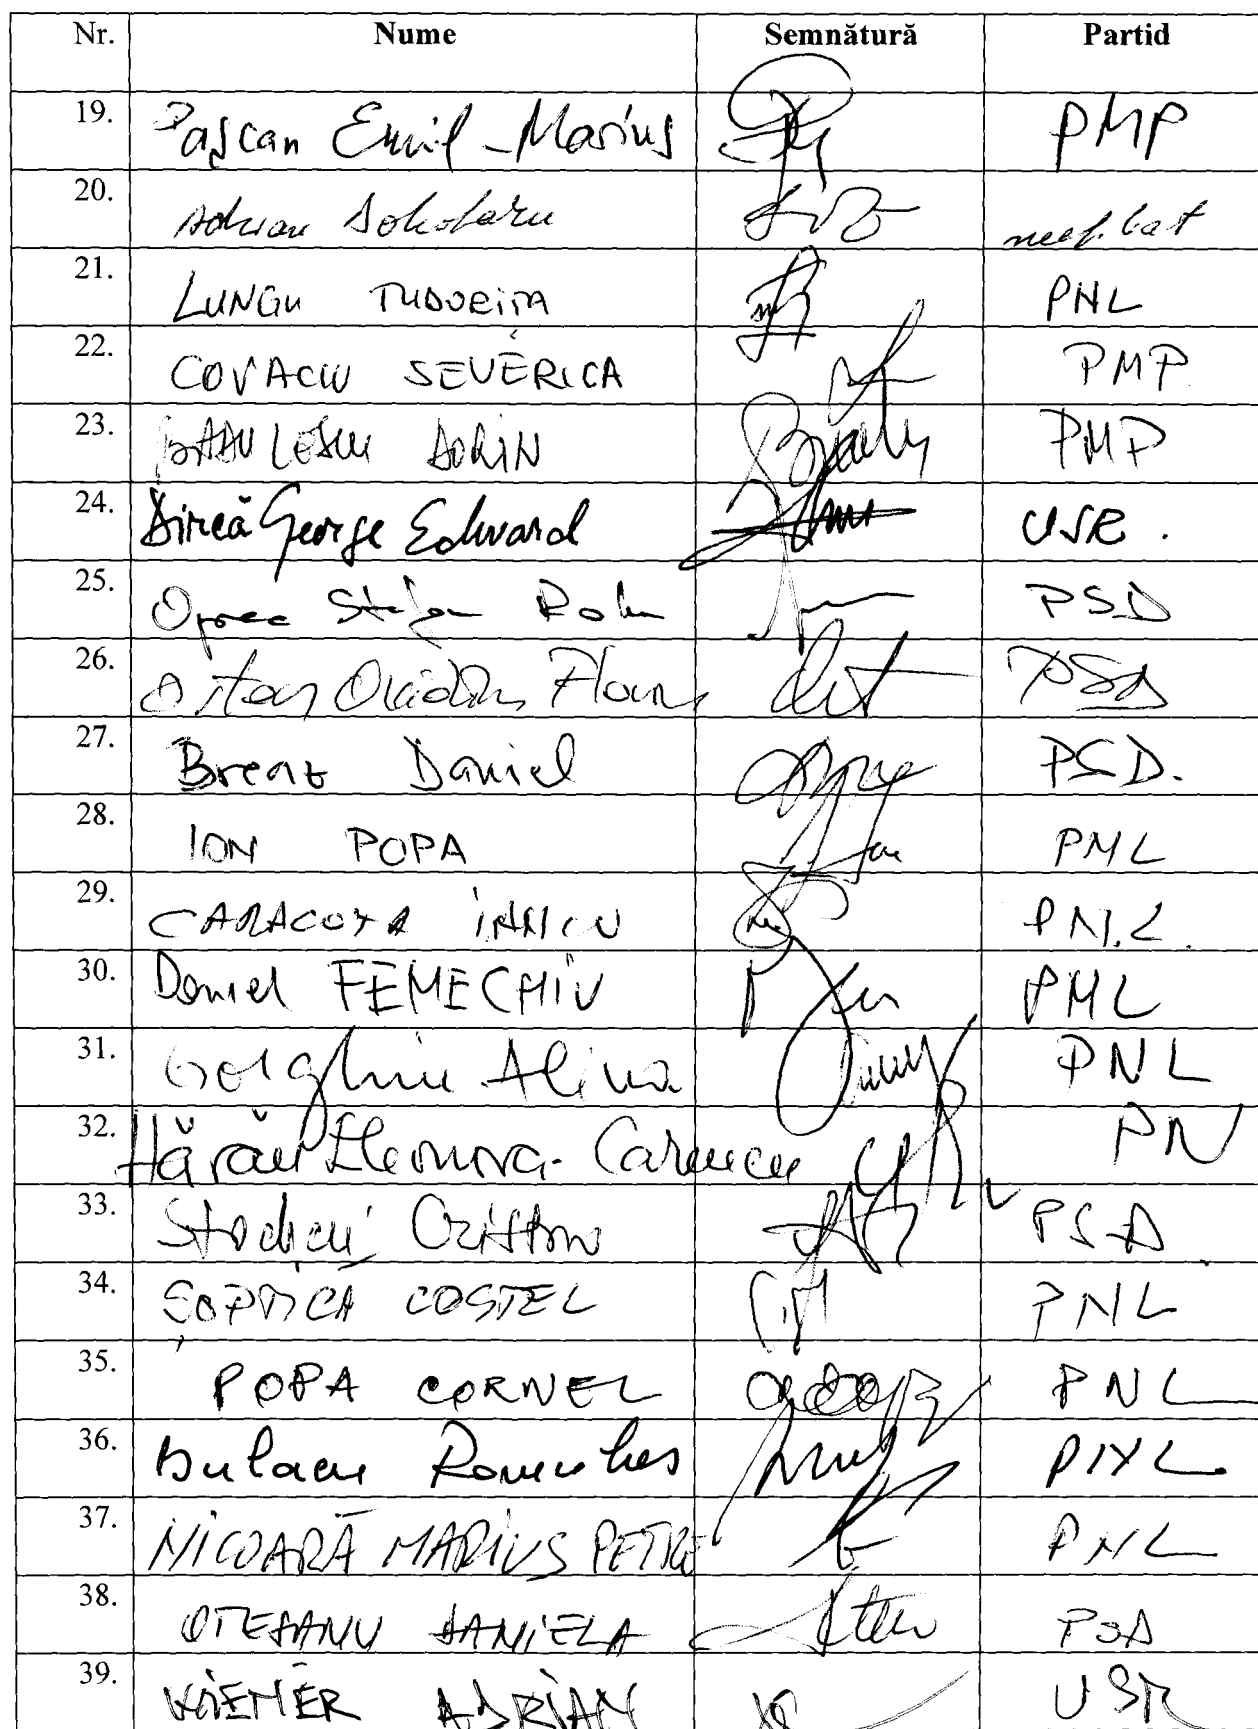 Nr. Nume Semnătură Partid
19. Pașcan Emil-Marius PMP
20. Adrian neafiliat
21. LUNGU TUDORIȚA PNL
22. COVACIU SEVERICA PMP
23. BĂDULESCU DORIN PMP
24. Dircă George Edward USR.
25. Oprea Ștefan Radu PSD
26. PSD
27. Breaz Daniel PSD.
28. ION POPA PNL
29. CARACOTA IANCU PNL.
30. Daniel FENECHIU PNL
31. Gorghiu Alina PNL
32. Hărău Eleonora-Carmen PN
33. PSD
34. ȘOPTICĂ COSTEL PNL
35. POPA CORNEL PNL
36. Bulacu Romulus PNL
37. NICOARĂ MARIUS PETRE PNL
38. OTEȘANU DANIELA PSD
39. WIENER ADRIAN USR